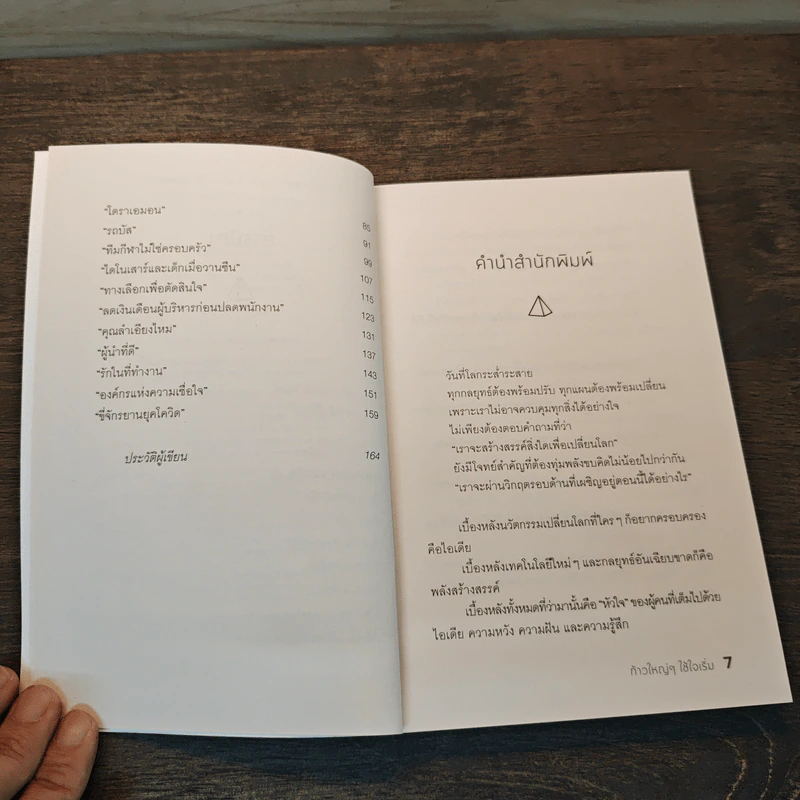 "โดราเอมอน" 85
"รถบัส" 91
"ทีมกีฬาไม่ใช่ครอบครัว" 99
"ไดโนเสาร์และเด็กเมื่อวานซืน" 107
"ทางเลือกเพื่อตัดสินใจ" 115
"ลดเงินเดือนผู้บริหารก่อนปลดพนักงาน" 123
"คุณลำเอียงไหม" 131
"ผู้นำที่ดี" 137
"รักในที่ทำงาน" 143
"องค์กรแห่งความเชื่อใจ" 151
"ขี่จักรยานยุคโควิด" 159
ประวัติผู้เขียน 164
คำนำสำนักพิมพ์
วันที่โลกระส่ำระสาย
ทุกกลยุทธ์ต้องพร้อมปรับ ทุกแผนต้องพร้อมเปลี่ยน
เพราะเราไม่อาจควบคุมทุกสิ่งได้อย่างใจ
ไม่เพียงต้องตอบคำถามที่ว่า
"เราจะสร้างสรรค์สิ่งใดเพื่อเปลี่ยนโลก"
ยังมีโจทย์สำคัญที่ต้องทุ่มพลังขบคิดไม่น้อยไปกว่ากัน
"เราจะผ่านวิกฤตรอบด้านที่เผชิญอยู่ตอนนี้ได้อย่างไร"
เบื้องหลังนวัตกรรมเปลี่ยนโลกที่ใครๆ ก็อยากครอบครอง
คือไอเดีย
เบื้องหลังเทคโนโลยีใหม่ๆ และกลยุทธ์อันเฉียบขาดก็คือ
พลังสร้างสรรค์
เบื้องหลังทั้งหมดที่ว่ามานั้นคือ "หัวใจ" ของผู้คนที่เต็มไปด้วย
ไอเดีย ความหวัง ความฝัน และความรู้สึก
ก้าวใหญ่ๆ ใช้ใจเริ่ม 7